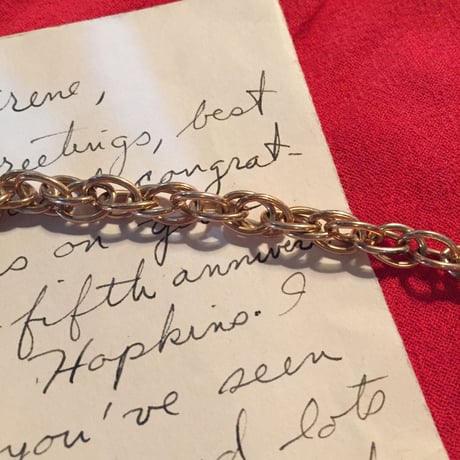 rene,
reetings, best
congrat-
s on
fifth anniver
Hopkins. I
you've seen
d lots